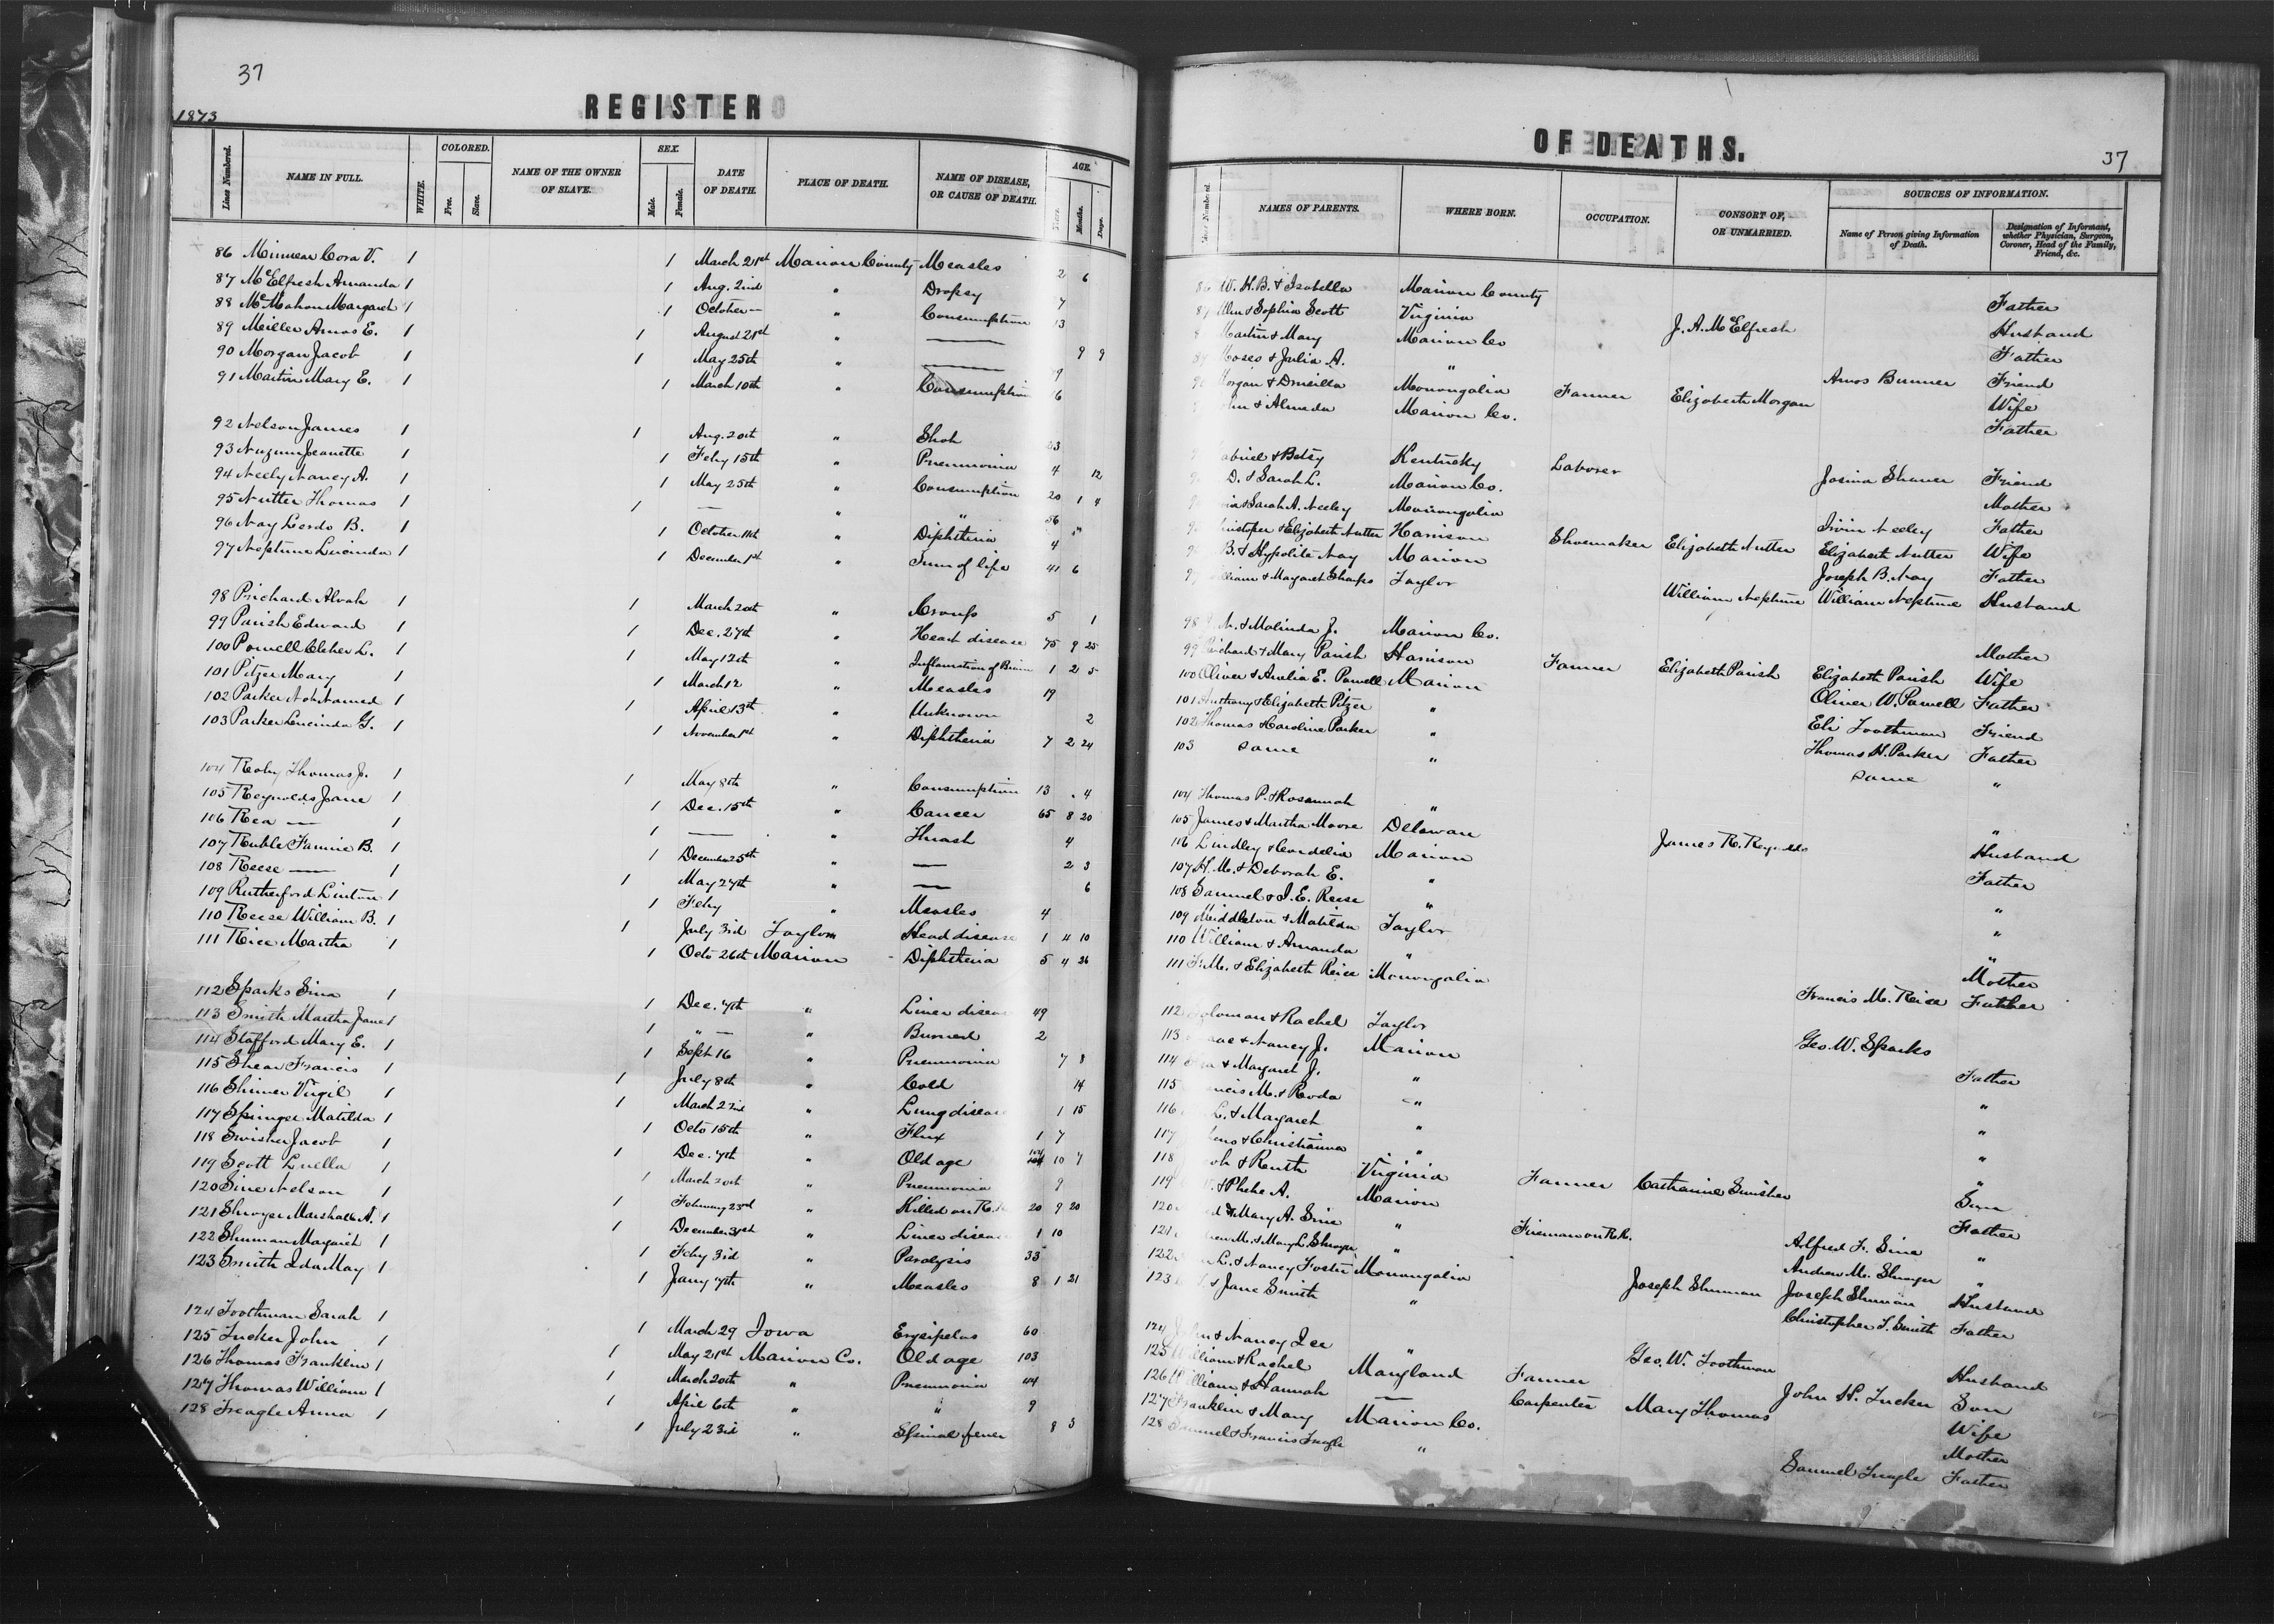 37
1873
REGISTER
Lines Numbered.
NAME IN FULL.
WHITE.
COLORED.
Free.
Slave.
NAME OF THE OWNER OF SLAVE.
SEX.
Male.
Female.
DATE OF DEATH.
PLACE OF DEATH.
NAME OF DISEASE, OR CAUSE OF DEATH.
AGE.
Years.
Months.
Days.
86 Minnear Cora V. 1 1 March 21st Marion County Measles 2 6
87 McElfresh Amanda 1 1 Aug. 2nd " Dropsy
88 McMahon Margaret 1 1 October — " Consumption 13
89 Meiller Amos E. 1 1 August 21st " — 9 9
90 Morgan Jacob 1 1 May 25th " —
91 Martin Mary E. 1 1 March 10th " Consumption
92 Nelson James 1 1 Aug. 20th " Shot 23
93 Nuzum Jeanette 1 1 Feby 15th " Pneumonia 4 12
94 Neely Nancy A. 1 1 May 25th " Consumption 20 1 4
95 Nutter Thomas 1 1 — " " 56
96 Nay Lerdo B. 1 1 October 11th " Diphtheria 4
97 Neptune Lucinda 1 1 December 1st " Turn of life 41 6
98 Prichard Alvah 1 1 March 20th " Croup 5 1
99 Parish Edward 1 1 Dec. 27th " Heart disease 75 9 25
100 Powell Cleher L. 1 1 May 12th " Inflamation of Brain 1 2 5
101 Pitzer Mary 1 1 March 12 " Measles 19
102 Parker Not Named 1 1 April 13th " Unknown 2
103 Parker Lucinda G. 1 1 November 1st " Diphtheria 7 2 24
104 Roby Thomas J. 1 1 May 8th " Consumption 13 4
105 Reynolds Jane 1 1 Dec. 15th " Cancer 65 8 20
106 Rea — 1 1 — " Thrash 4
107 Ruble Fannie B. 1 1 December 25th " — 2 3
108 Reese — 1 1 May 27th " — 6
109 Rutherford Linton 1 1 Feby " Measles 4
110 Reese William B. 1 1 July 3rd Taylor Head disease 1 4 10
111 Rice Martha 1 1 Octo 26th Marion Diphtheria 5 4 26
112 Sparks Sina 1 1 Dec. 7th " Liver disease 49
113 Smith Martha Jane 1 1 " — " Burned 2
114 Stafford Mary E. 1 1 Sept 16 " Pneumonia 7 8
115 Shear Francis 1 1 July 8th " Cold 14
116 Shimer Virgil 1 1 March 23rd " Lung disease 1 15
117 Springer Matilda 1 1 Octo 15th " Flux 1 7
118 Swisher Jacob 1 1 Dec. 7th " Old age 104 10 7
119 Scott Luella 1 1 March 20th " Pneumonia 9
120 Sine Nelson 1 1 February 23rd " Killed on R. R. 20 9 20
121 Shroyer Marshall A. 1 1 December 31st " Liver disease 1 10
122 Shuman Margaret 1 1 Feby 3rd " Paralysis 33
123 Smith Ida May 1 1 Jany 7th " Measles 8 1 21
124 Toothman Sarah 1 1 March 29 Iowa Erysipelas 60
125 Tucker John 1 1 May 21st Marion Co. Old age 103
126 Thomas Franklin 1 1 March 20th " Pneumonia 44
127 Thomas William 1 1 April 6th " " 9
128 Treagle Anna 1 1 July 23rd " Spinal fever 8 3
OF DEATHS.
37
NAMES OF PARENTS.
WHERE BORN.
OCCUPATION.
CONSORT OF, OR UNMARRIED.
SOURCES OF INFORMATION.
Name of Person giving Information of Death.
Designation of Informant, whether Physician, Surgeon, Coroner, Head of the Family, Friend, &c.
86 W. K. B. & Isabella Marion County Father
87 Wm & Sophia Scott Virginia J. A. McElfresh Husband
Martin & Mary Marion Co Father
Moses & Julia A. " Amos Bunner Friend
Morgan & Drucilla Monongalia Farmer Elizabeth Morgan Wife
& Almeda Marion Co. Father
& Betsy Kentucky Laborer Josina Shaver Friend
D. & Sarah L. Marion Co. Mother
& Sarah A. Neeley Monongalia Irvin Neeley Father
& Elizabeth Nutter Harrison Shoemaker Elizabeth Nutter Elizabeth Nutter Wife
B. & Hypolite Nay Marion Joseph B. Nay Father
William & Margaret Sharps Taylor William Neptune William Neptune Husband
98 & Malinda J. Marion Co. Mother
99 Richard & Mary Parish Harrison Farmer Elizabeth Parish Elizabeth Parish Wife
100 Oliver & Amelia E. Powell Marion Oliver W. Powell Father
101 Anthony & Elizabeth Pitzer " Eli Toothman Friend
102 Thomas & Caroline Parker " Thomas H. Parker Father
103 same " same "
104 Thomas P. & Rosannah " "
105 James & Martha Moore Delaware James R. Reynolds Husband
106 Lindley & Cordelia Marion Father
107 H. M. & Deborah E. " "
108 Samuel & I. E. Reese " "
109 Middleton & Matilda Taylor "
110 William & Amanda " Mother
111 F. M. & Elizabeth Reice Monongalia Francis M. Reice Father
112 Soloman & Rachel Taylor Geo. W. Sparks
113 & Nancy J. Marion Father
114 & Margaret J. " "
115 Francis M. & Roda " "
116 L. & Margaret " "
117 & Christianna " "
118 & Reuth Virginia Farmer Catharine Swisher Son
119 & Phebe A. Marion Father
120 & Mary A. Sine " Fireman on R.R. Alfred F. Sine "
121 M. & Mary L. Shroyer " Andrew M. Shroyer "
122 L. & Nancy Foster Monongalia Joseph Shuman Joseph Shuman Husband
123 & Jane Smith " Christopher T. Smith Father
124 John & Nancy Lee " Geo. W. Toothman Husband
125 William & Rachel Maryland Farmer John H. Tucker Son
126 William & Hannah — Carpenter Mary Thomas Wife
127 Franklin & Mary Marion Co. Mother
128 Samuel & Francis Treagle " Samuel Treagle Father